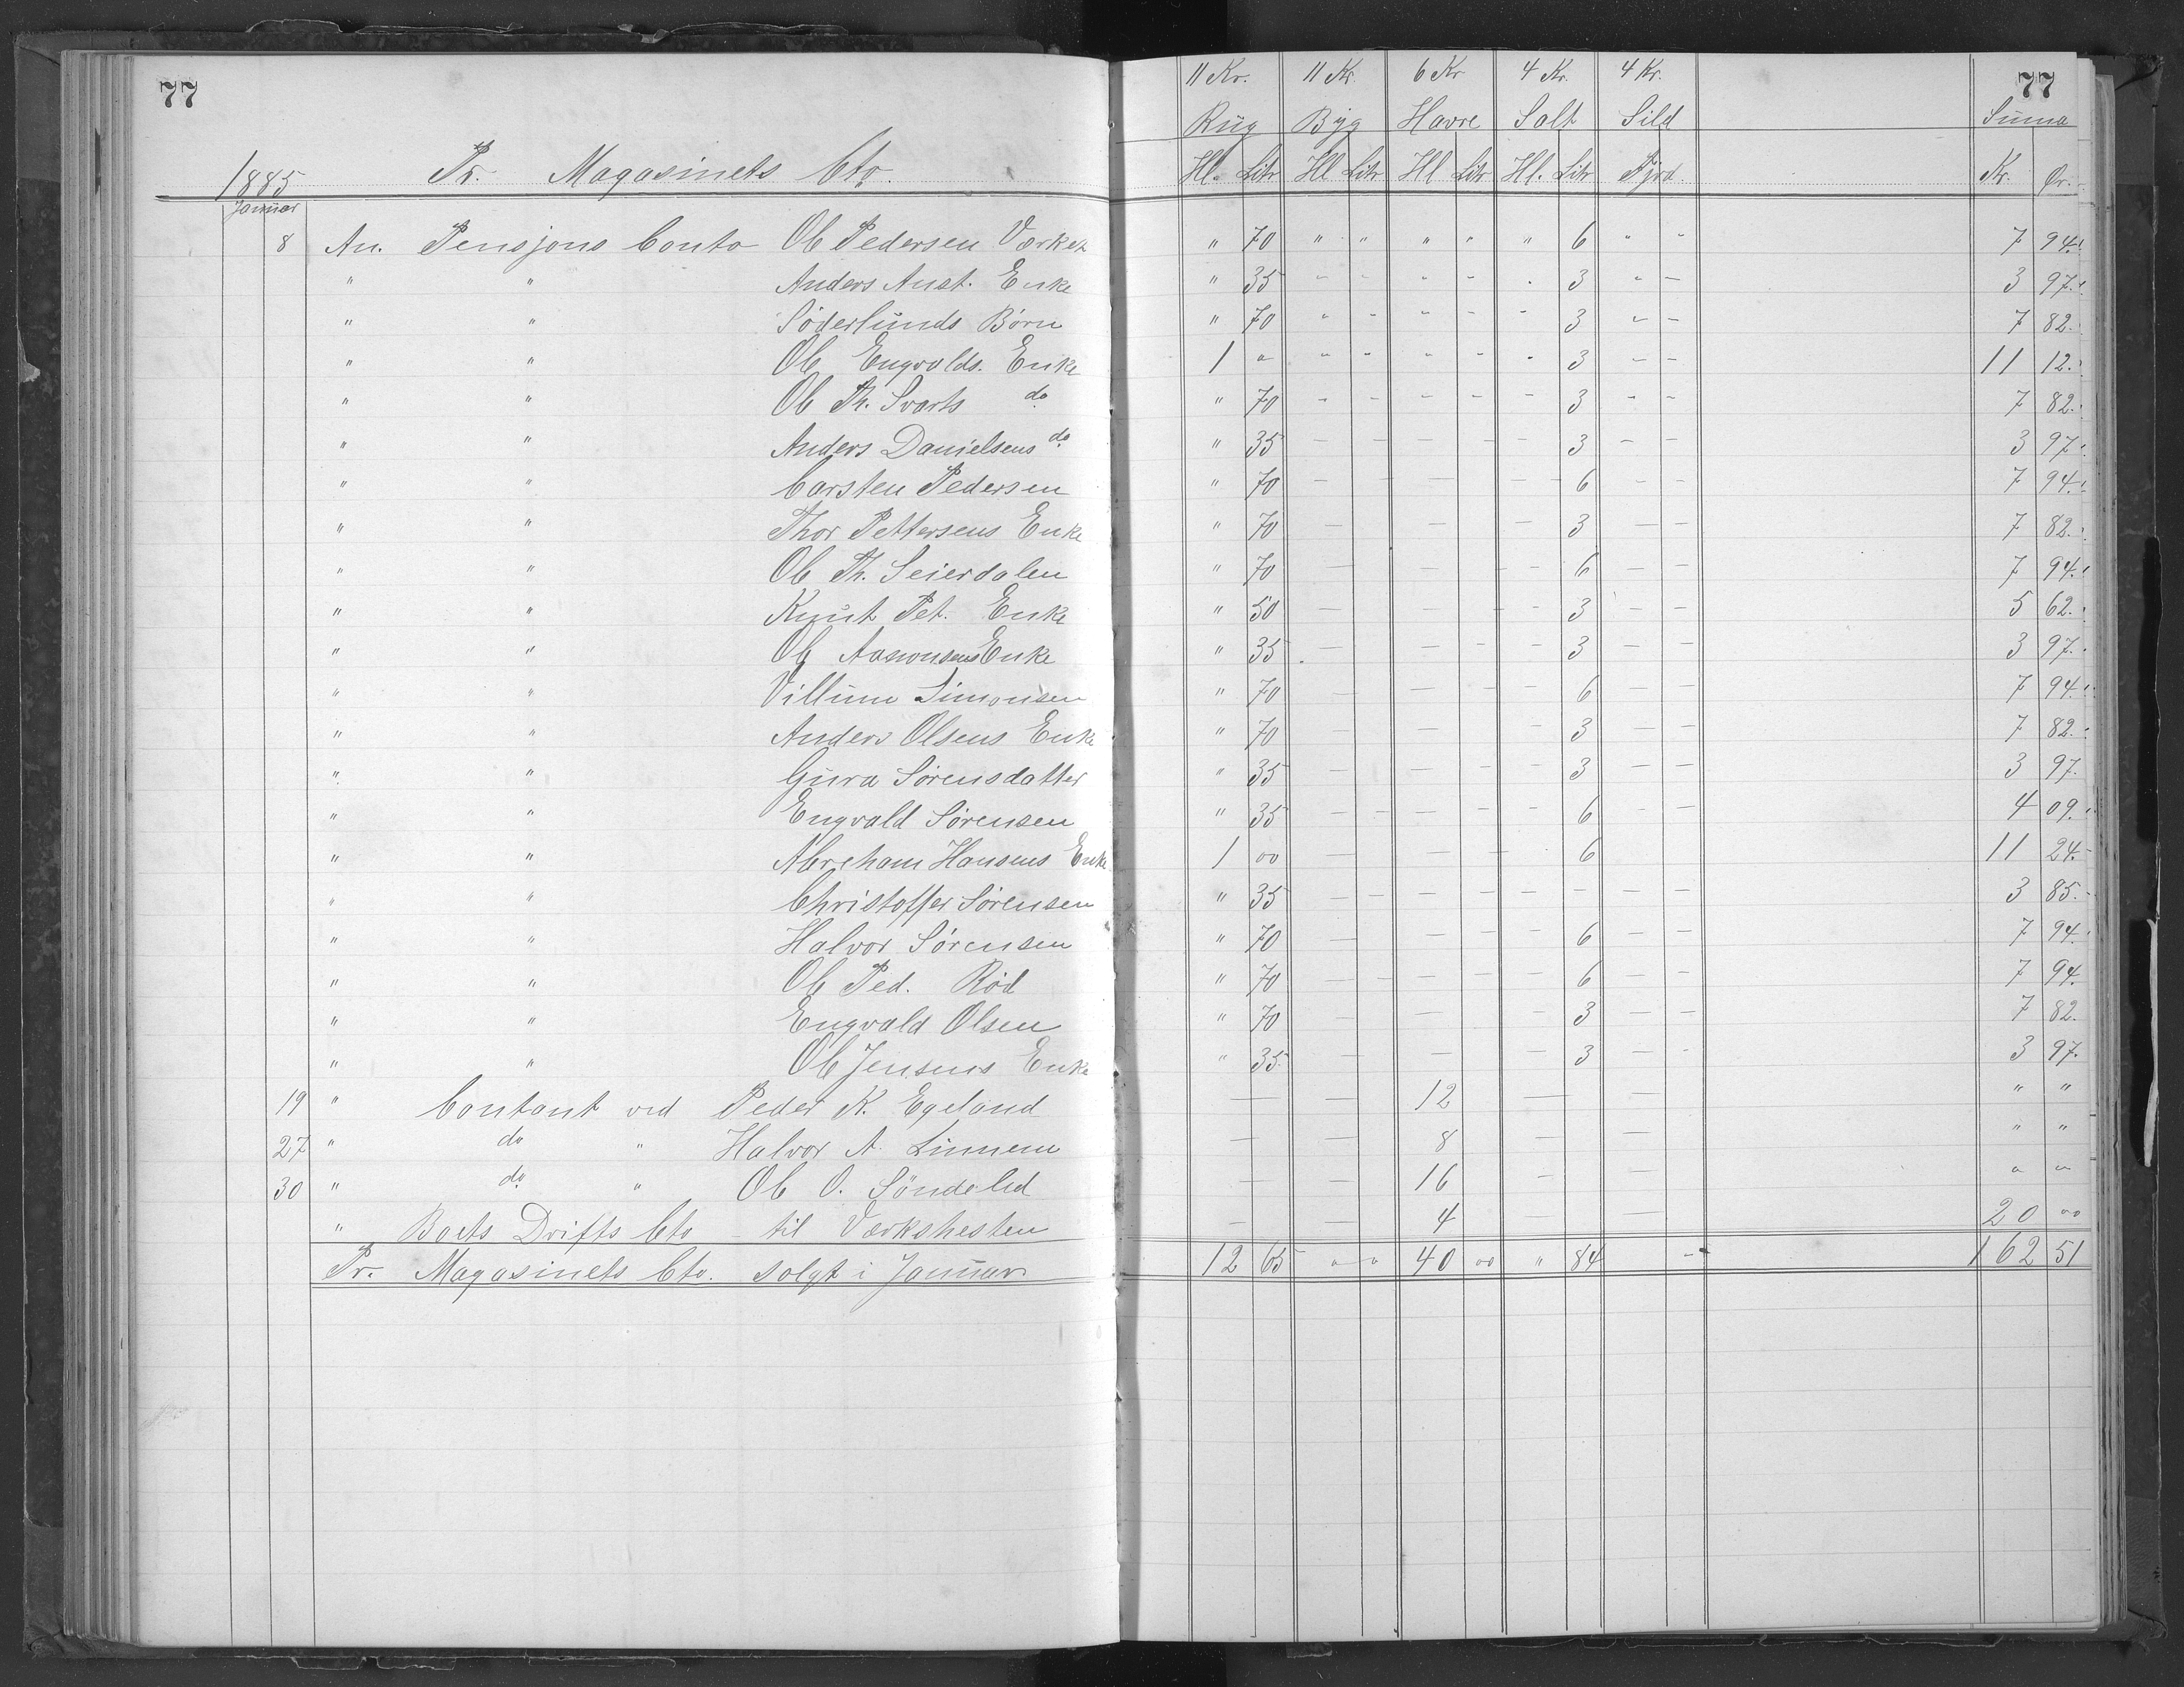 77
1885 Pr. Magasinets Cto.
Januar
11 Kr. 11 Kr. 6 Kr 4 Kr. 4 Kr. 77
Rug Byg Havre Salt Sild Suma
Hl. Litr Hl Litr Hl Litr Hl. Litr Fjrd. Kr. Ør.
8 An. Pensjons Conto Ole Pedersen Værket " 70 " " " " " 6 " " 7 94
" " Anders Aust. Enke " 35 - - - - - 3 - - 3 97
" " Söderlunds Börn " 70 " - - - - 3 - - 7 82
" " Ole Engvolds. Enke 1 " " " " " - 3 - - 11 12
" " Ole Th. Svarts do " 70 - - - - - 3 - - 7 82
" " Anders Danielsens do " 35 - - - - - 3 - - 3 97
" " Carsten Pedersen " 70 - - - - 6 - - 7 94
" " Thor Pettersens Enke " 70 - - - 3 - - 7 82
" " Ole Th. Seierdalen " 70 - - - - 6 - - 7 94
" " Knut Pet. Enke " 50 - - - - 3 - - 5 62
" " Ole Aanonsens Enke " 35 - - - - 3 - - 3 97
" " Villum Simonsen " 70 - - - - 6 - - 7 94
" " Anders Olsens Enke " 70 - - - 3 - - 7 82
" " Gura Sörensdatter " 35 - - - - 3 - - 3 97
" " Engvald Sörensen " 35 - - - - - 6 - - 4 09
" " Abreham Hansens Enke 1 00 - - - 6 11 24
" " Christoffer Sörensen " 35 - - - - - - - - 3 85
" " Halvor Sörensen " 70 - - - - 6 - - 7 94
" " Ole Ped. Röd " 70 - - - - - 6 - - 7 94
" " Engvald Olsen " 70 - - - 3 - - 7 82
" " Ole Jensens Enke " 35 - - - 3 - - 3 97
19 " Contant ved Peder K. Egeland - - 12 - - " "
27 " do " Halvor A. Linnem - - 8 - - " "
30 " do " Ole O. Söndeled - - 16 - - " "
" Boets Drifts Cto - til Værkshesten - - 4 - - 20 00
Pr. Magasinets Cto. solgt i Januar 12 65 " " 40 00 " 84 - 162 51